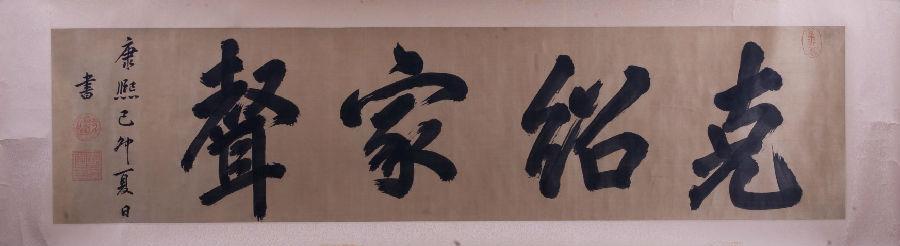 克紹家聲
康熙己卯夏日
書